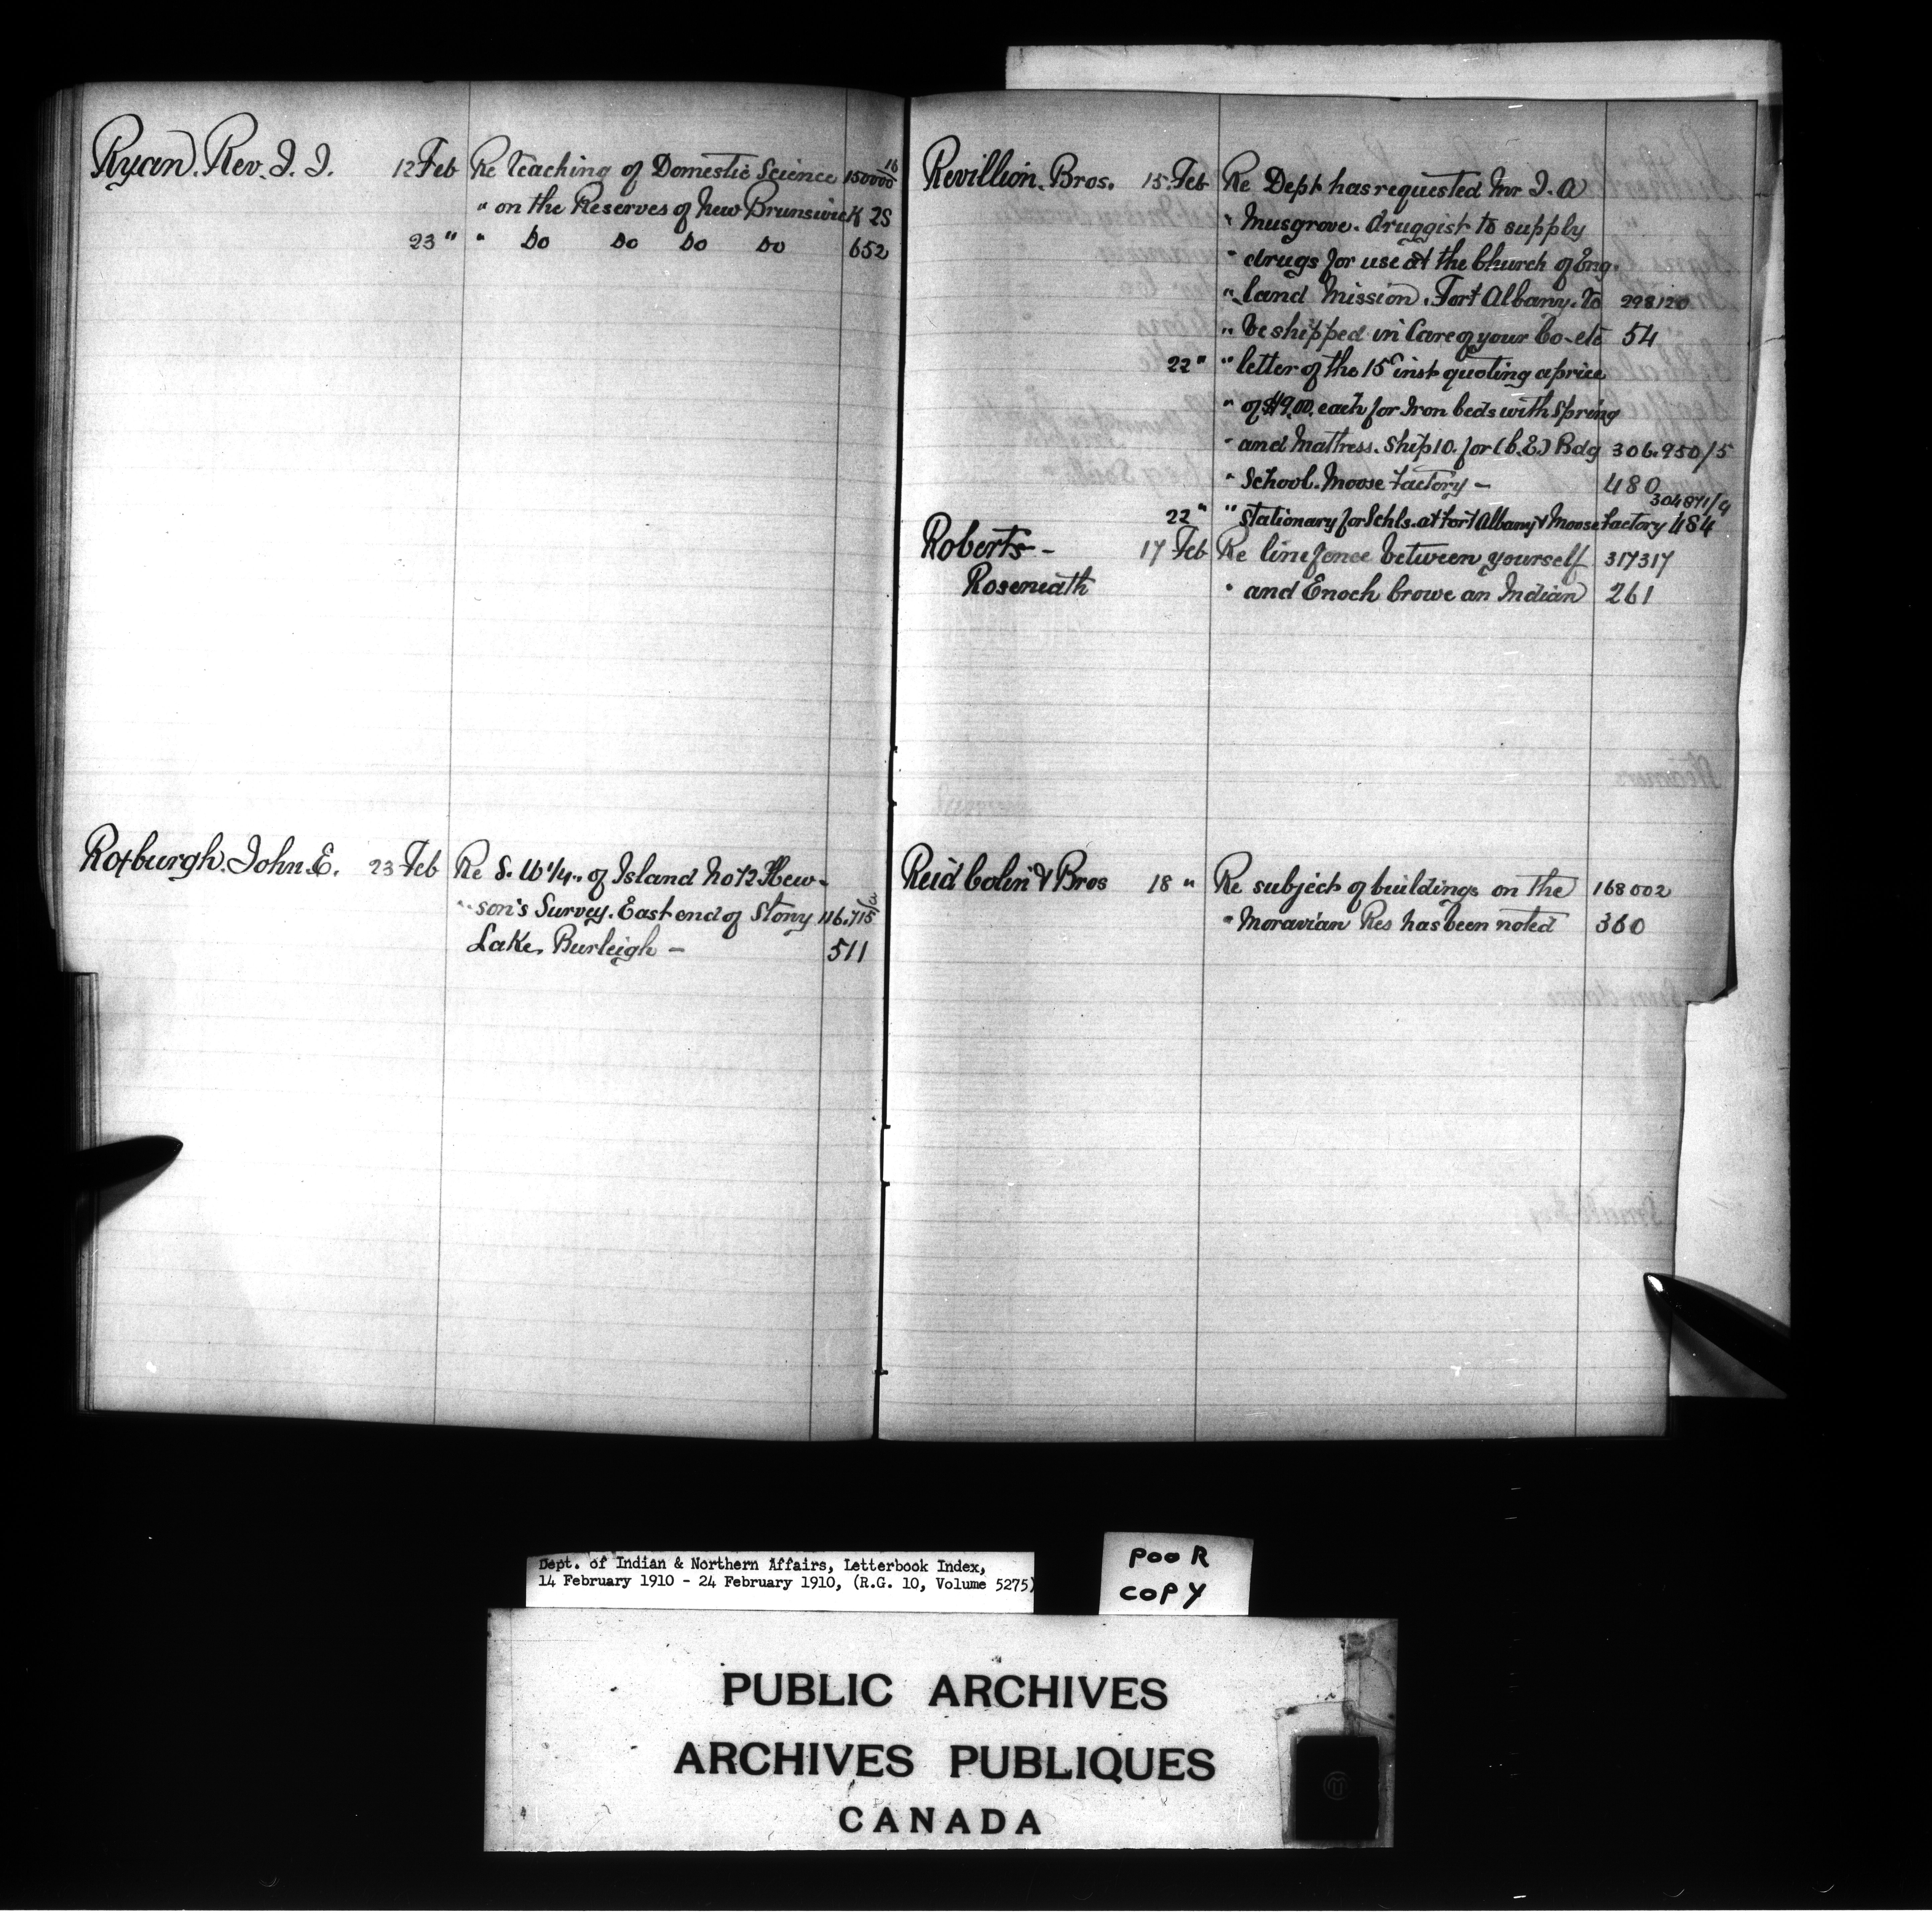 Ryan. Rev. J. J. 12 Feb Re Teaching of Domestic Science 150000/16
" on the Reserves of New Brunswick 25
23 " " Do Do Do Do 652
Roxburgh. John E. 23 Feb Re S. W 1/4. of Island No 12 Hew-
" son's Survey. East end of Stony 116.715/a
Lake, Burleigh — 511
Revillion. Bros. 15. Feb Re Dept has requested Mr J. A
" Musgrove. druggist to supply
" drugs for use at the Church of Eng-
" land Mission. Fort Albany. To 298120
" be shipped in Care of your Co-etc 54
22 " " letter of the 15th inst quoting a price
" of $19.00. each for Iron beds with Spring
" and Mattress. Ship 10. for (C.E.) Bdg 306.950/5
" School. Moose Factory — 480
304871/9
22 " " Stationary for Schls. at Fort Albany & Moose Factory 484
Roberts- 17 Feb Re line fence between yourself 317317
Roseneath " and Enoch Crowe an Indian 261
Reid Colin & Bros 18 " Re subject of buildings on the 168002
" Moravian Res has been noted 360
Dept. of Indian & Northern Affairs, Letterbook Index,
14 February 1910 - 24 February 1910, (R.G. 10, Volume 5275)
POOR
COPY
PUBLIC ARCHIVES
ARCHIVES PUBLIQUES
CANADA